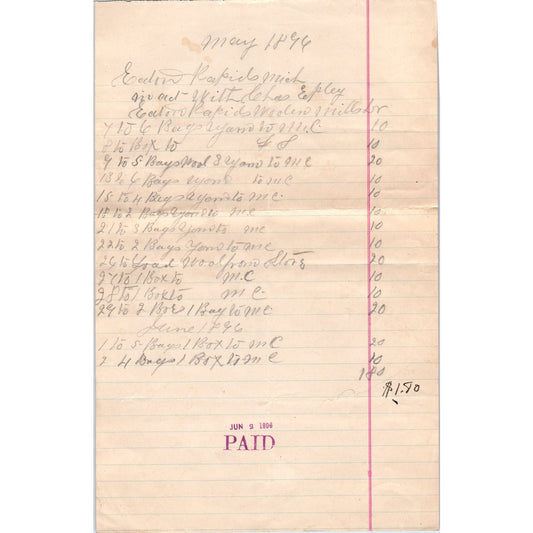 May 1896
Eaton Rapids Mich
in act With Chas Epley
Eaton Rapids Woolen Mills Dr
7 to 6 Bags Yarn to M.C 10
8 to Box to 10
9 to 5 Bags Wool 3 Yarn to M C 20
13 to 6 Bags Yarn to M C 10
15 to 4 Bags Yarn to M C 10
18 to 2 Bags Yarn to M C 10
21 to 3 Bags Yarn to M C 10
22 to 2 Bags Yarn to M C 10
26 to Load Wool from Store 20
27 to 1 Box to M.C 10
28 to 1 Box to M C 10
29 to 2 Boxes 1 Bag to M C 20
June 1896
1 to 5 Bags 1 Box to M C 20
2 4 Bags 1 Box to M C 10
180
$1.80
JUN 9 1896
PAID